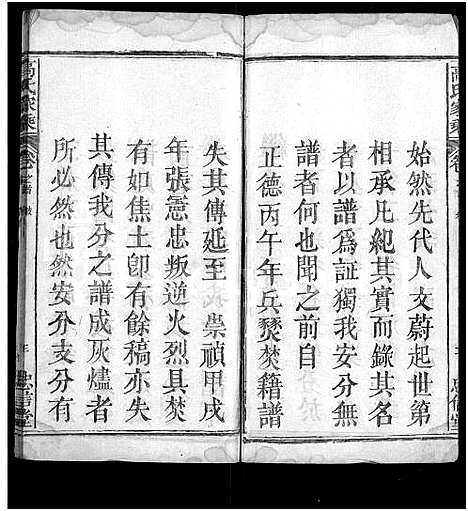 高氏家乘
始然先代人文蔚起世第
相承凡紀其實而錄其名
者以譜爲証獨我安分無
譜者何也聞之前自
正德丙午年兵燹焚籍譜
失其傳延至 崇禎甲戌
年張憲忠叛逆火烈具焚
有如焦土卽有餘稿亦失
其傳我分之譜成灰燼者
所必然也然安分支分有
高氏家乘
忠信堂